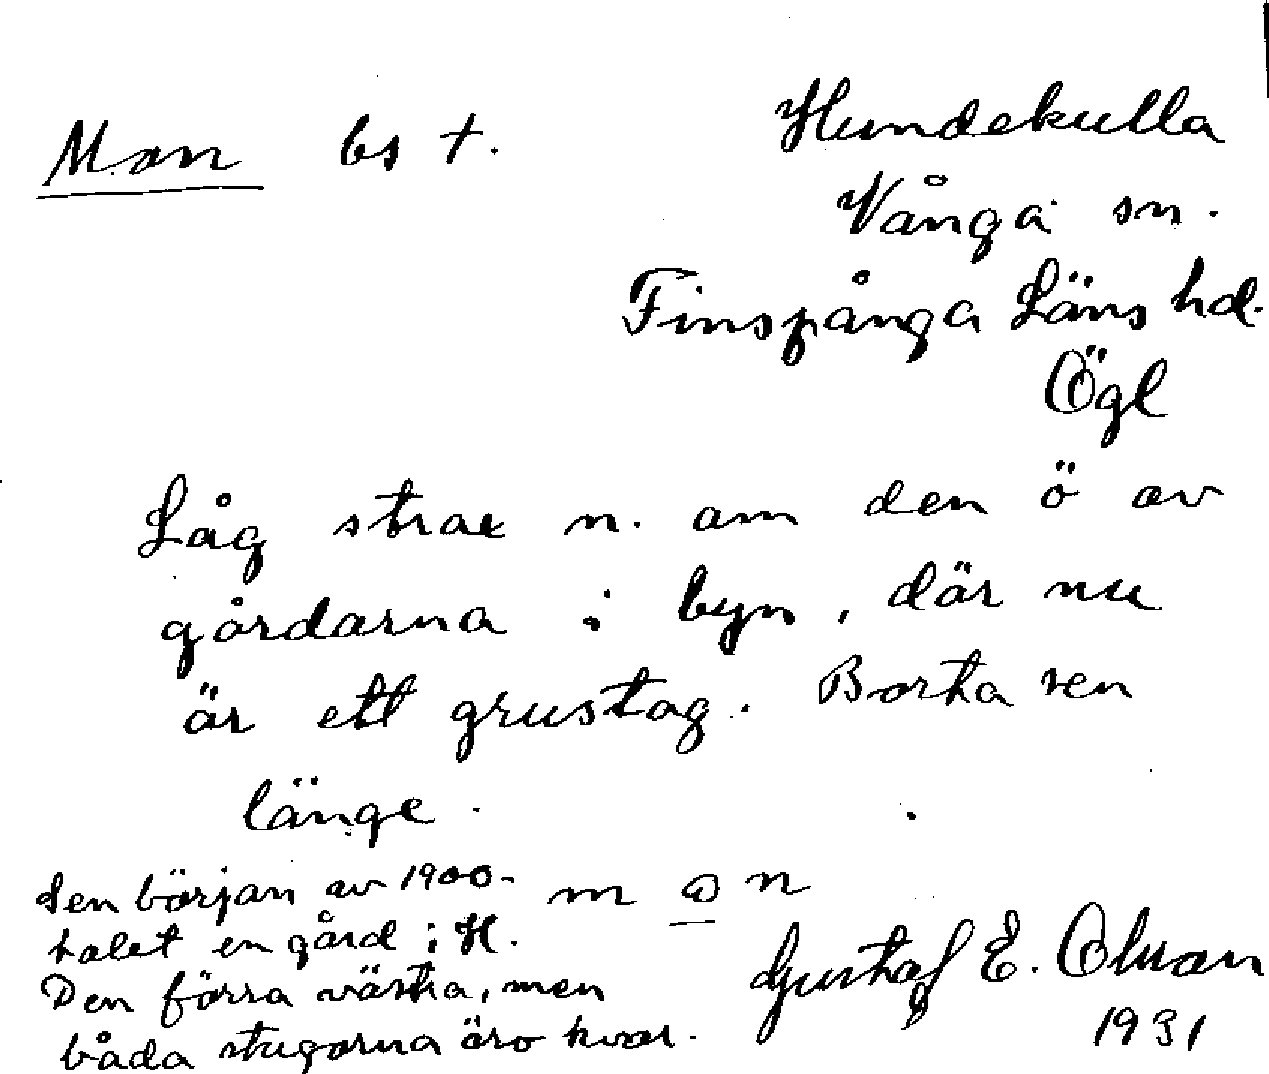 Mon bs †.
Hundekulla
Vånga sn.
Finspånga Läns hd.
Ögl
Låg strax n. om den ö av
gårdarna i byn, där nu
är ett grustag. Borta sen
länge.
m o n
Sen början av 1900-
talet en gård i H.
Den förra västra, men
båda stugorna äro kvar.
Gustaf E. Olson
1931